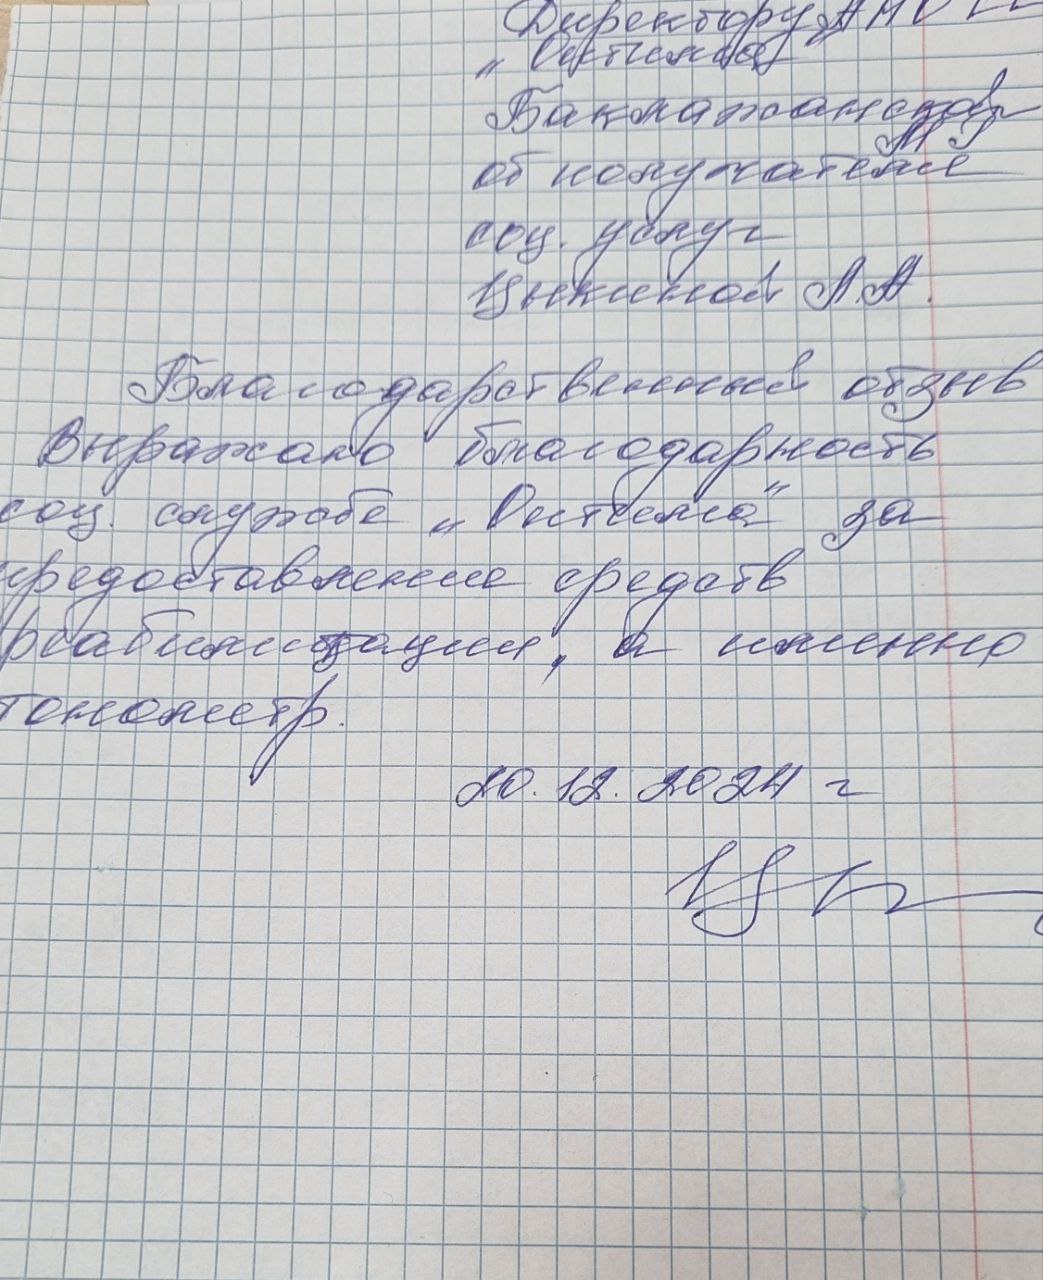 Директору АНО
"Оптима"
Бакмажанской
М Г
от получателя
соц. услуг
Цыкиной Л.А.
Благодарственный отзыв
Выражаю благодарность
соц. службе "Оптима" за
предоставление средств
реабилитации, а именно
тонометр.
20.12.2024 г